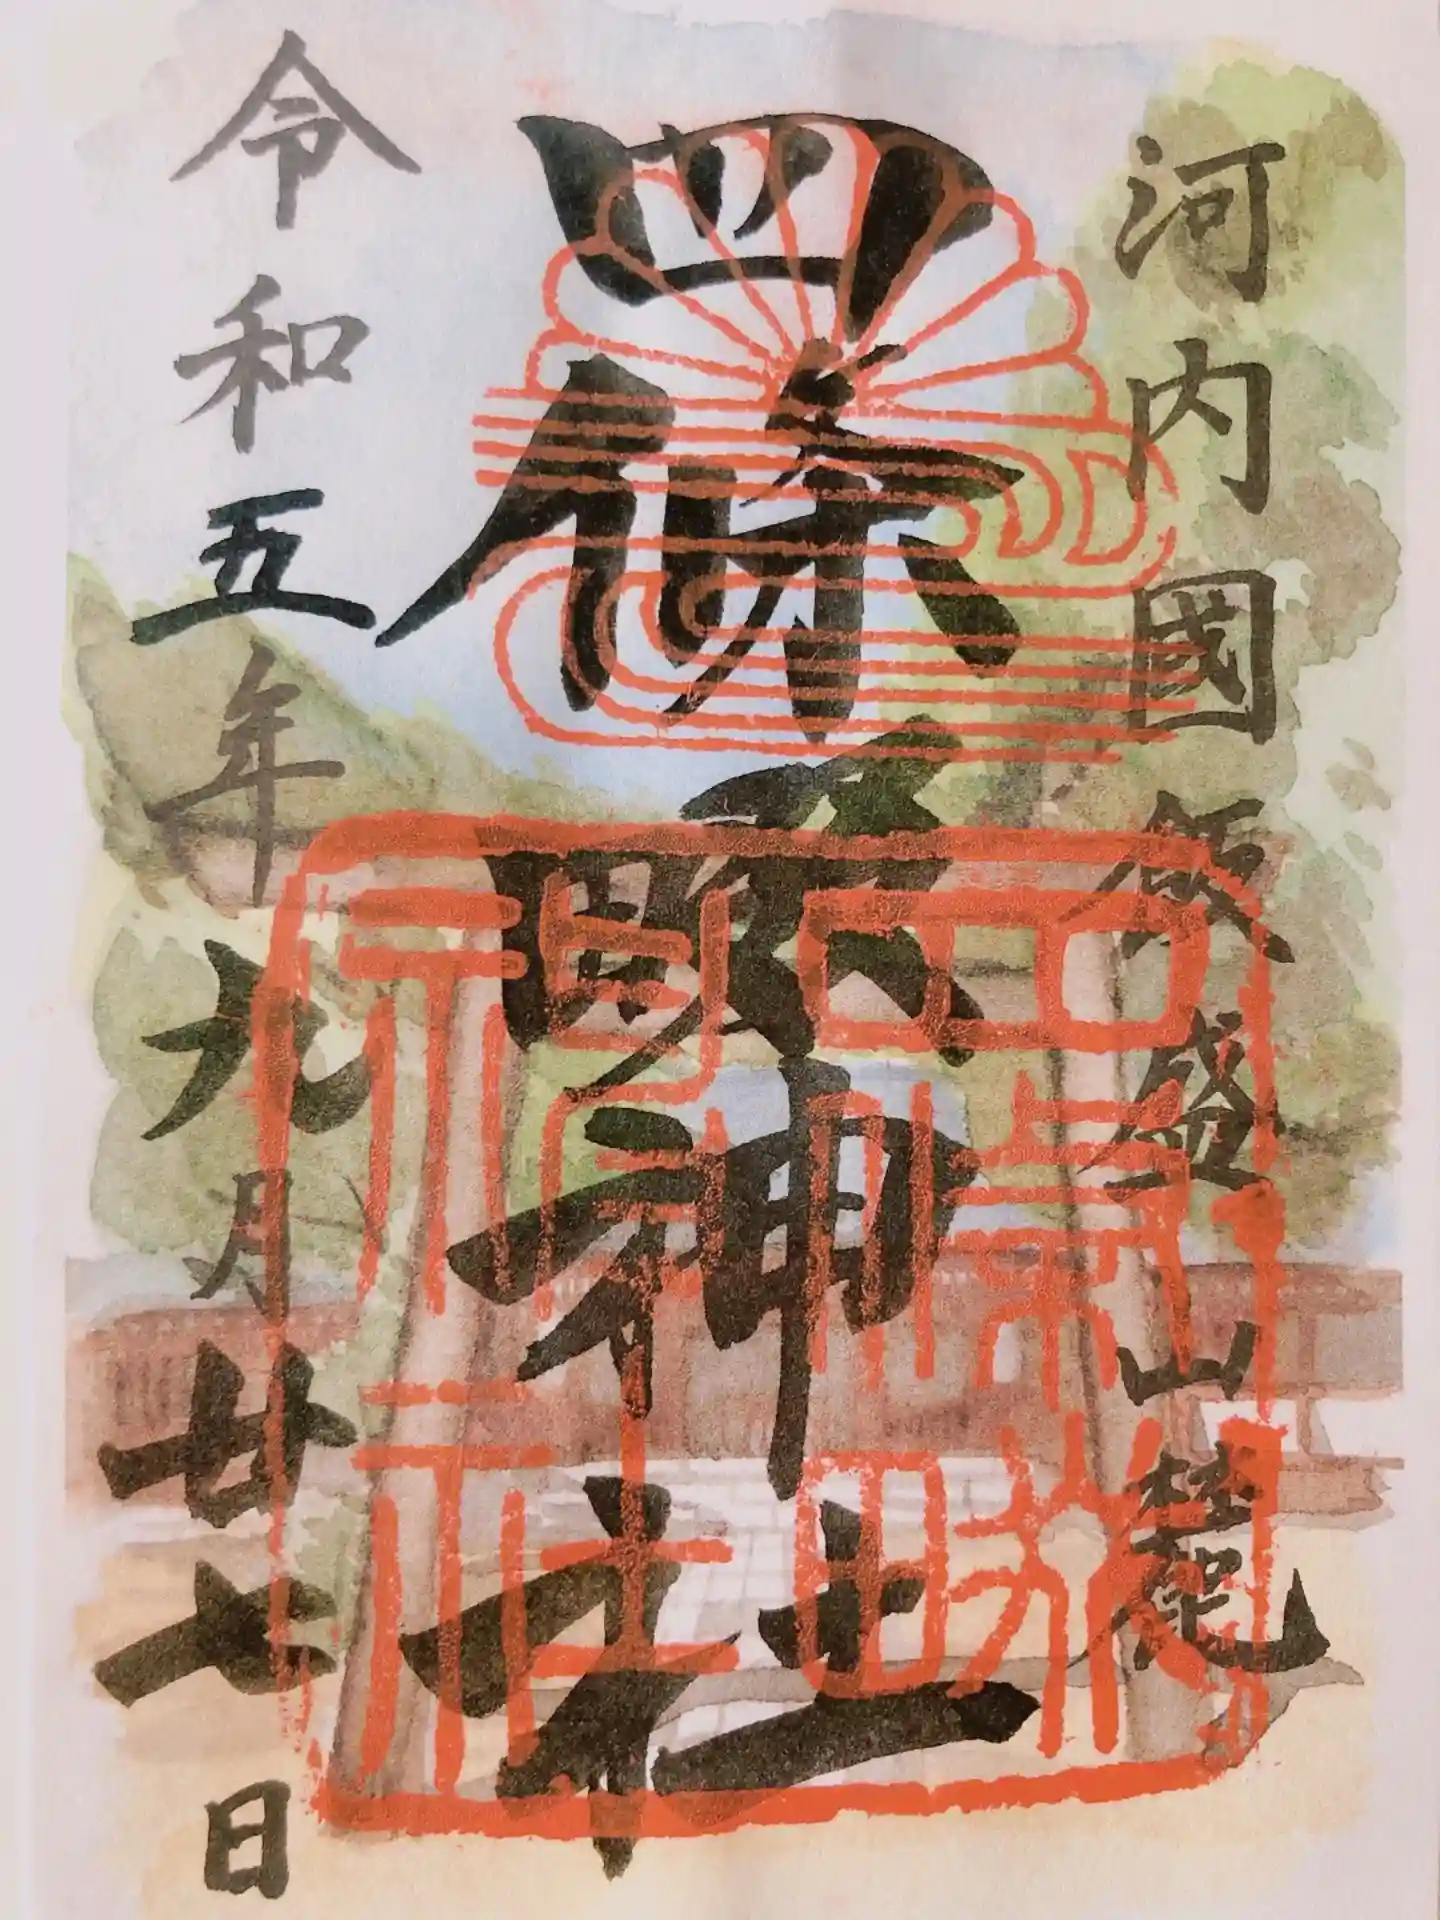 河内國飯盛山麓
四條畷神社
令和五年九月廿七日
四條畷神社